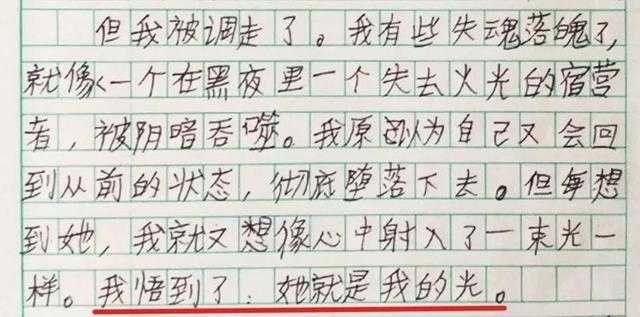 但我被调走了。我有些失魂落魄了，
就像一个在黑夜里一个失去火光的宿营
者，被阴暗吞噬。我原以为自己又会回
到从前的状态，彻底堕落下去。但每想
到她，我就又想像心中射入了一束光一
样。我悟到了：她就是我的光。